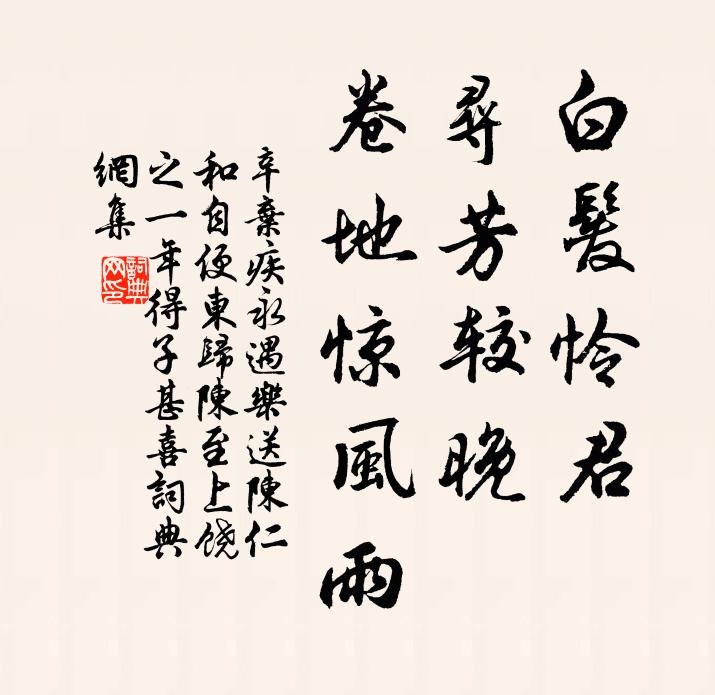 白髮怜君
尋芳較晚
卷地惊風雨
辛棄疾永遇樂送陳仁
和自便東歸陳至上饶
之一年得子甚喜詞典
網集
詞典
网印